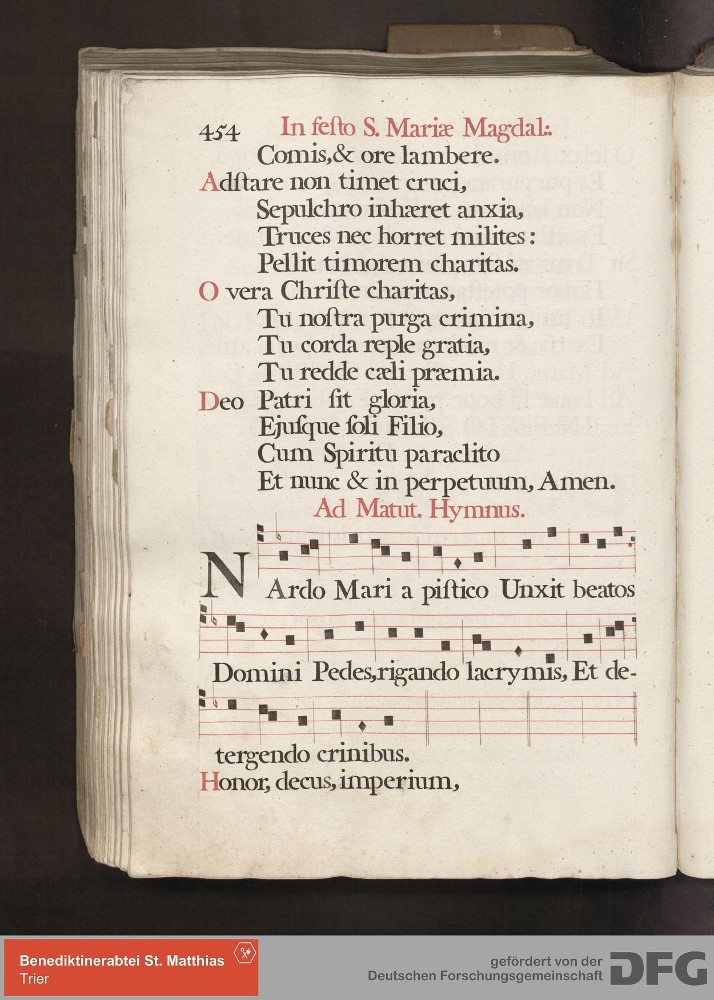 454 In feſto S. Mariæ Magdal:.
Comis, & ore lambere.
Adſtare non timet cruci,
Sepulchro inhæret anxia,
Truces nec horret milites:
Pellit timorem charitas.
O vera Chriſte charitas,
Tu noſtra purga crimina,
Tu corda reple gratia,
Tu redde cæli præmia.
Deo Patri ſit gloria,
Ejuſque ſoli Filio,
Cum Spiritu paraclito
Et nunc & in perpetuum, Amen.
Ad Matut. Hymnus.
NArdo Mari a piſtico Unxit beatos
Domini Pedes, rigando lacrymis, Et de-
tergendo crinibus.
Honor, decus, imperium,
Benediktinerabtei St. Matthias
Trier
gefördert von der
Deutschen Forschungsgemeinschaft
DFG